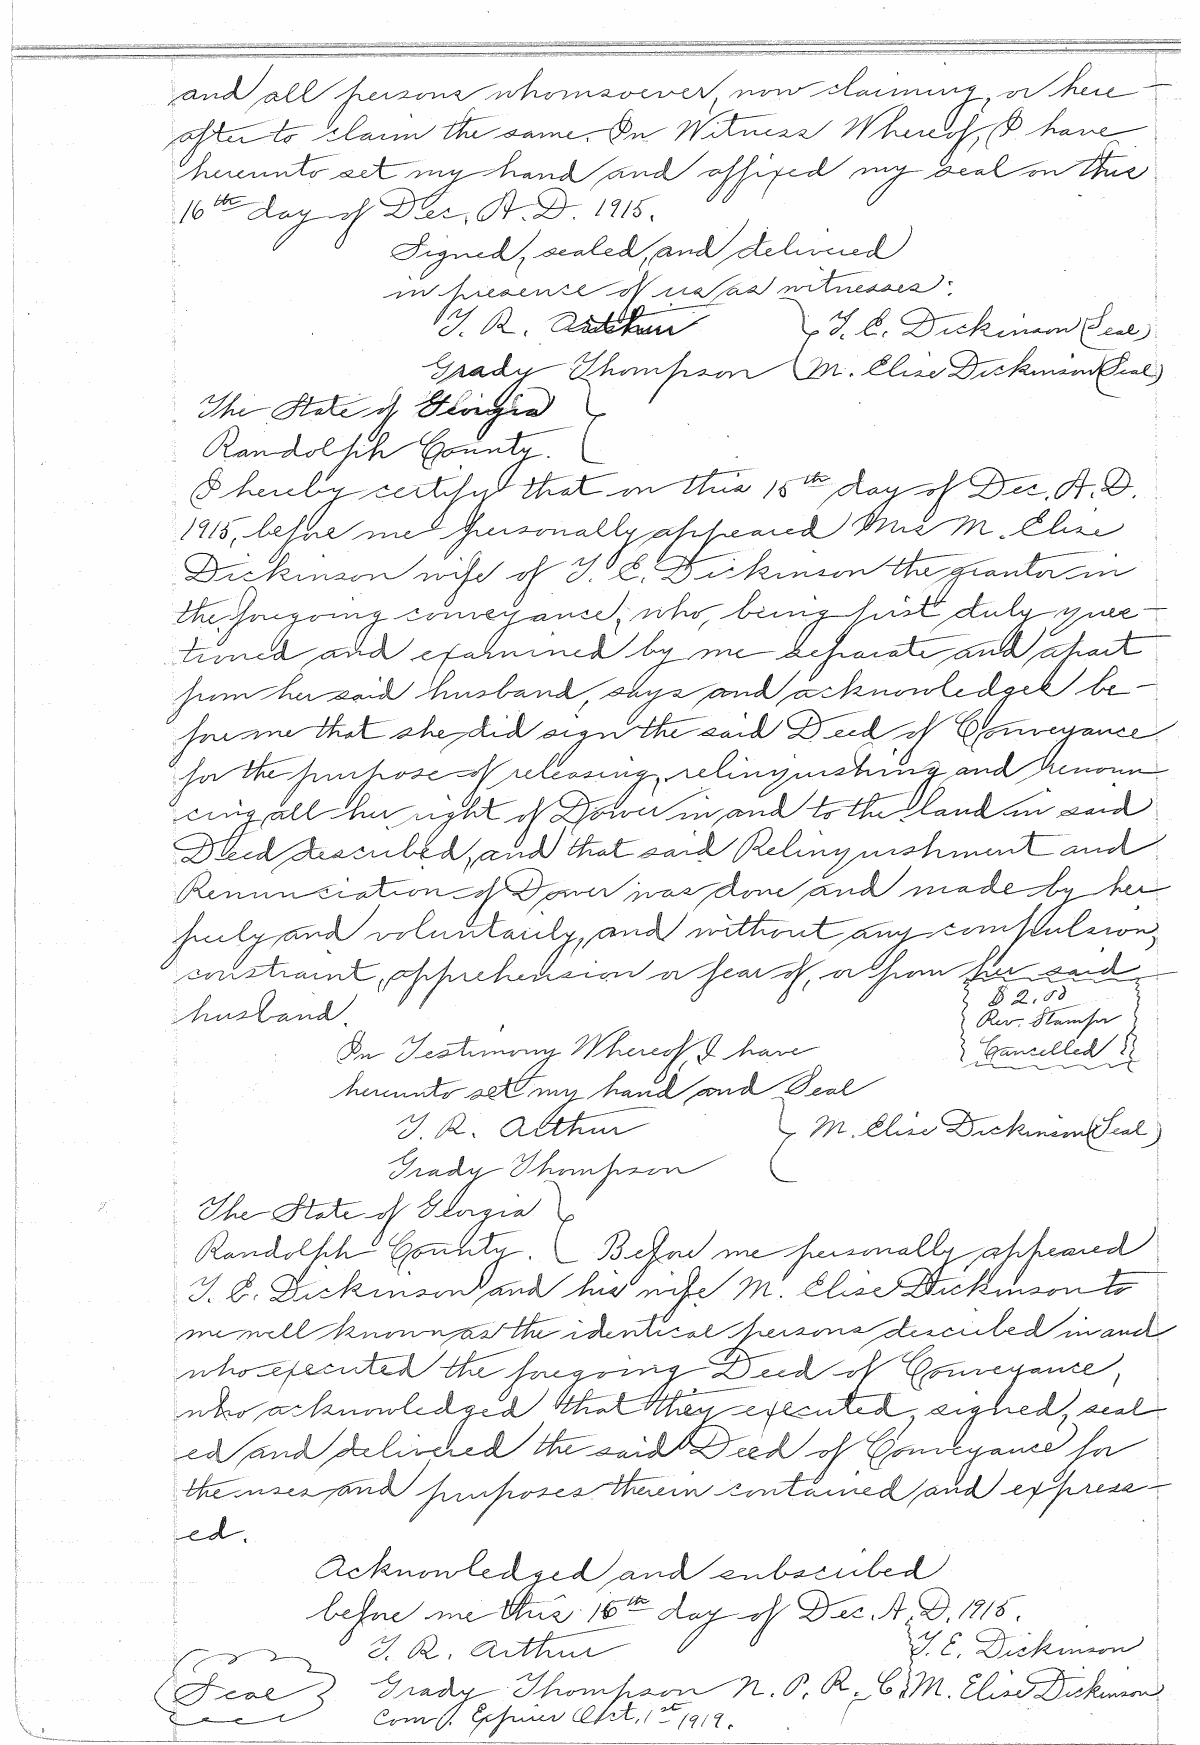 and all persons whomsoever, now claiming, or here-
after to claim the same. In Witness Whereof, I have
hereunto set my hand and affixed my seal on this
16th day of Dec. A.D. 1915.
Signed, sealed, and delivered
in presence of us as witnesses:
T. R. Arthur } T. E. Dickinson (Seal)
Grady Thompson M. Elise Dickinson (Seal)
The State of Georgia }
Randolph County.
I hereby certify that on this 15th day of Dec. A.D.
1915, before me personally appeared Mrs M. Elise
Dickinson wife of T. E. Dickinson the grantor in
the foregoing conveyance, who, being first duly ques-
tioned and examined by me separate and apart
from her said husband, says and acknowledges be-
fore me that she did sign the said Deed of Conveyance
for the purpose of releasing, relinquishing and renoun
cing all her right of Dower in and to the land in said
Deed described, and that said Relinquishment and
Renunciation of Dower was done and made by her
freely and voluntarily, and without any compulsion,
constraint, apprehension or fear of, or from her said
husband.
$2.00
Rev. Stamps
Cancelled
In Testimony Whereof, I have
hereunto set my hand and Seal
T. R. Arthur } M. Elise Dickinson (Seal)
Grady Thompson
The State of Georgia }
Randolph County. Before me personally appeared
T. E. Dickinson and his wife M. Elise Dickinson to
me well known as the identical persons described in and
who executed the foregoing Deed of Conveyance,
who acknowledged that they executed, signed, seal
ed and delivered the said Deed of Conveyance for
the uses and purposes therein contained and express-
ed.
Acknowledged and subscribed
before me this 15th day of Dec. A.D. 1915.
T. R. Arthur } T. E. Dickinson
Seal Grady Thompson N. P. R. C. } M. Elise Dickinson
Com. Expires Oct. 1st 1919.